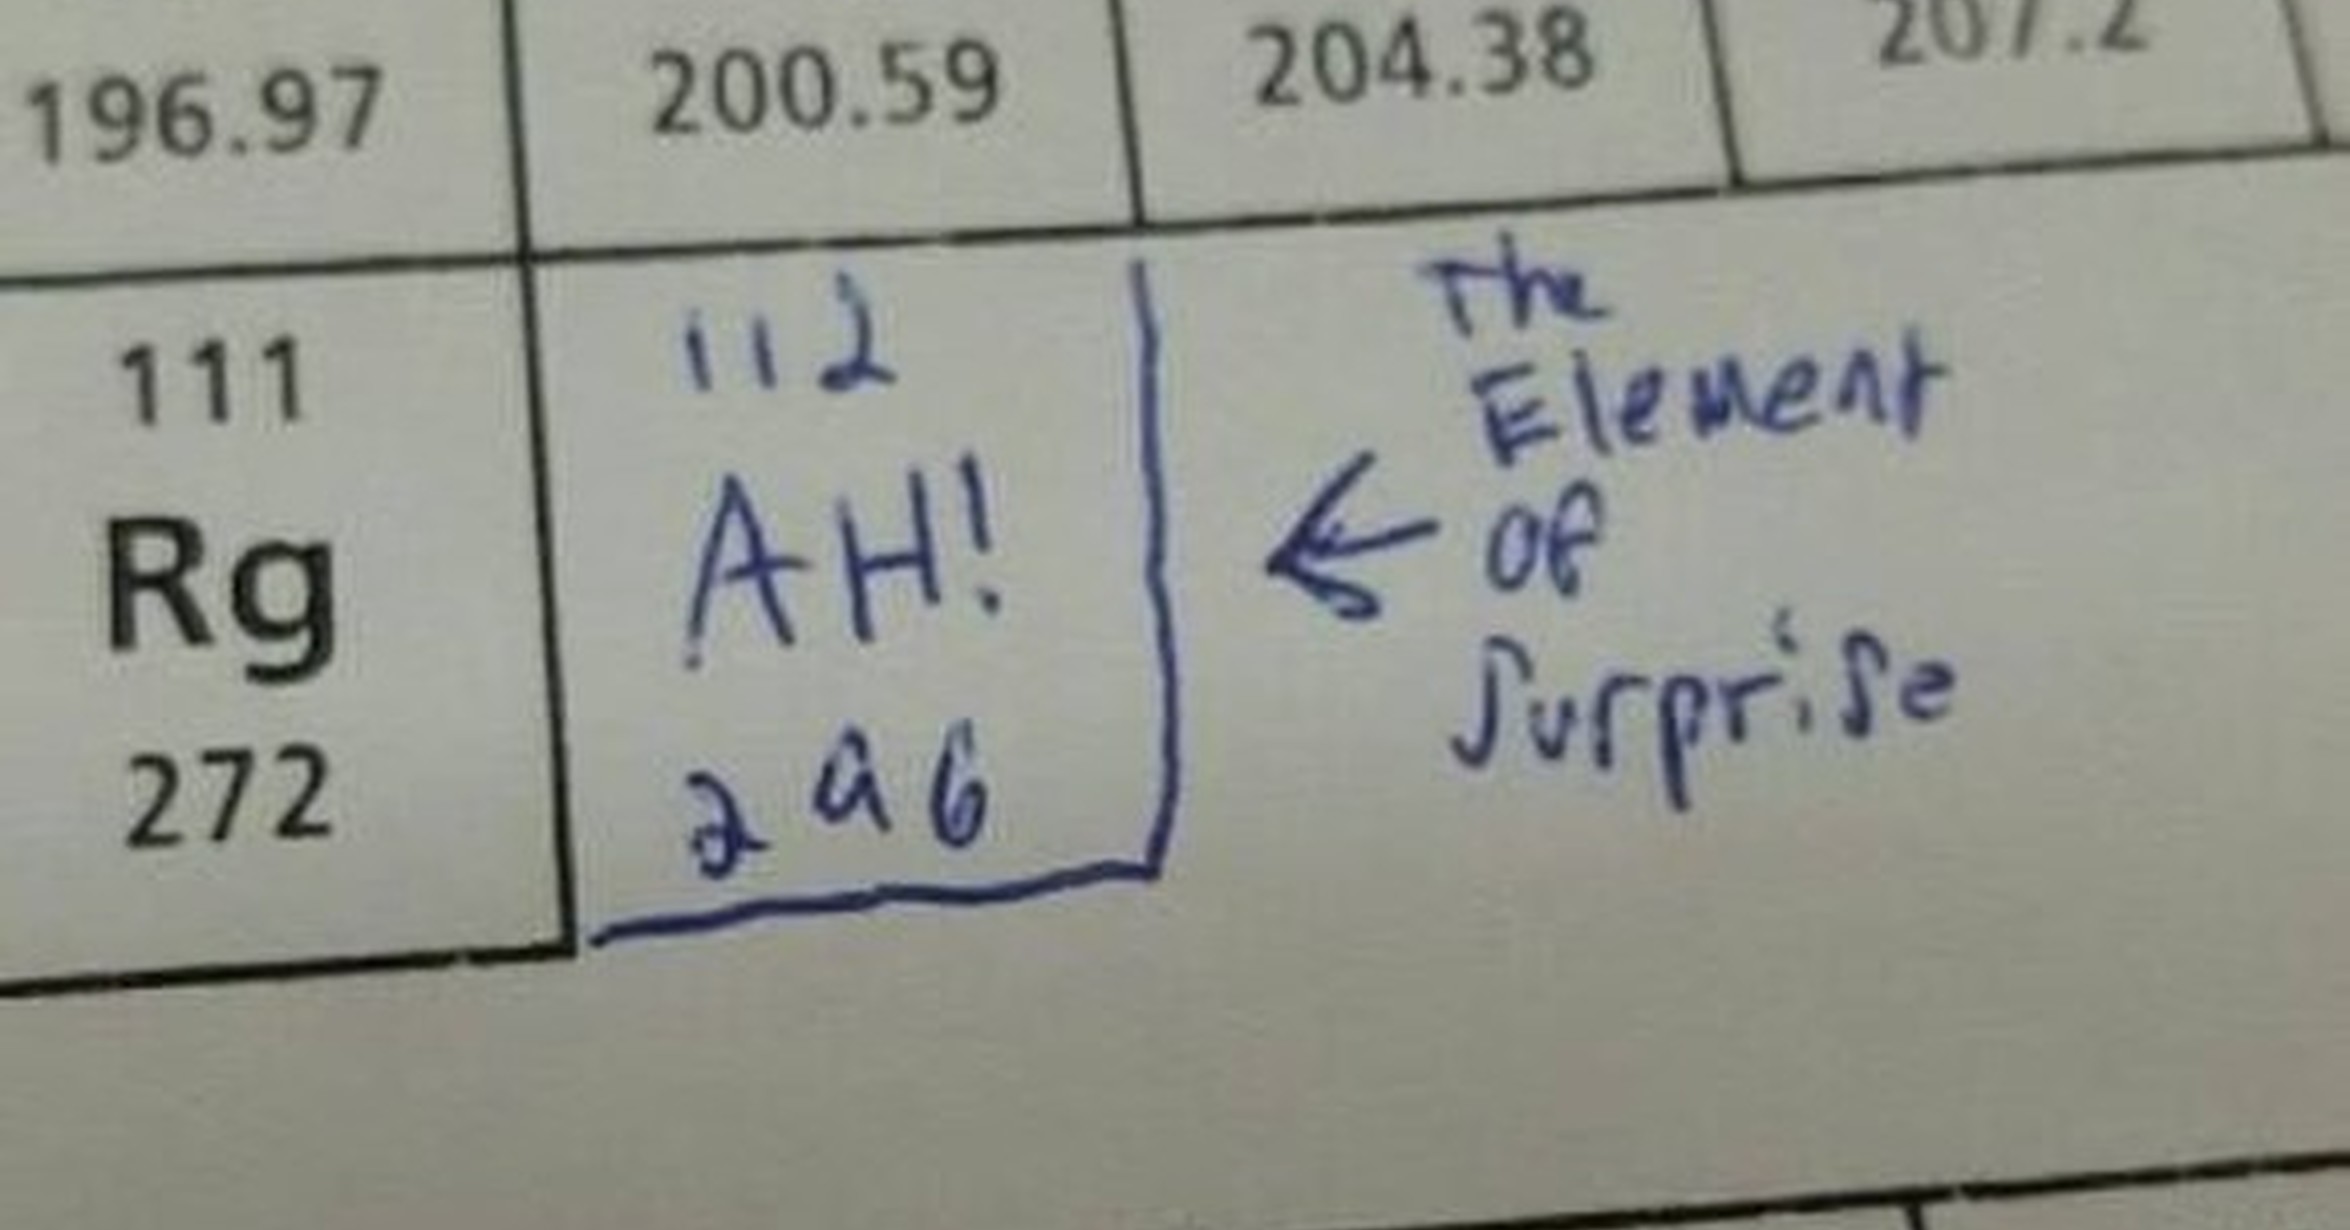 196.97 200.59 204.38 207.2
111 112 The
Rg AH! Element
272 296 Of
Surprise